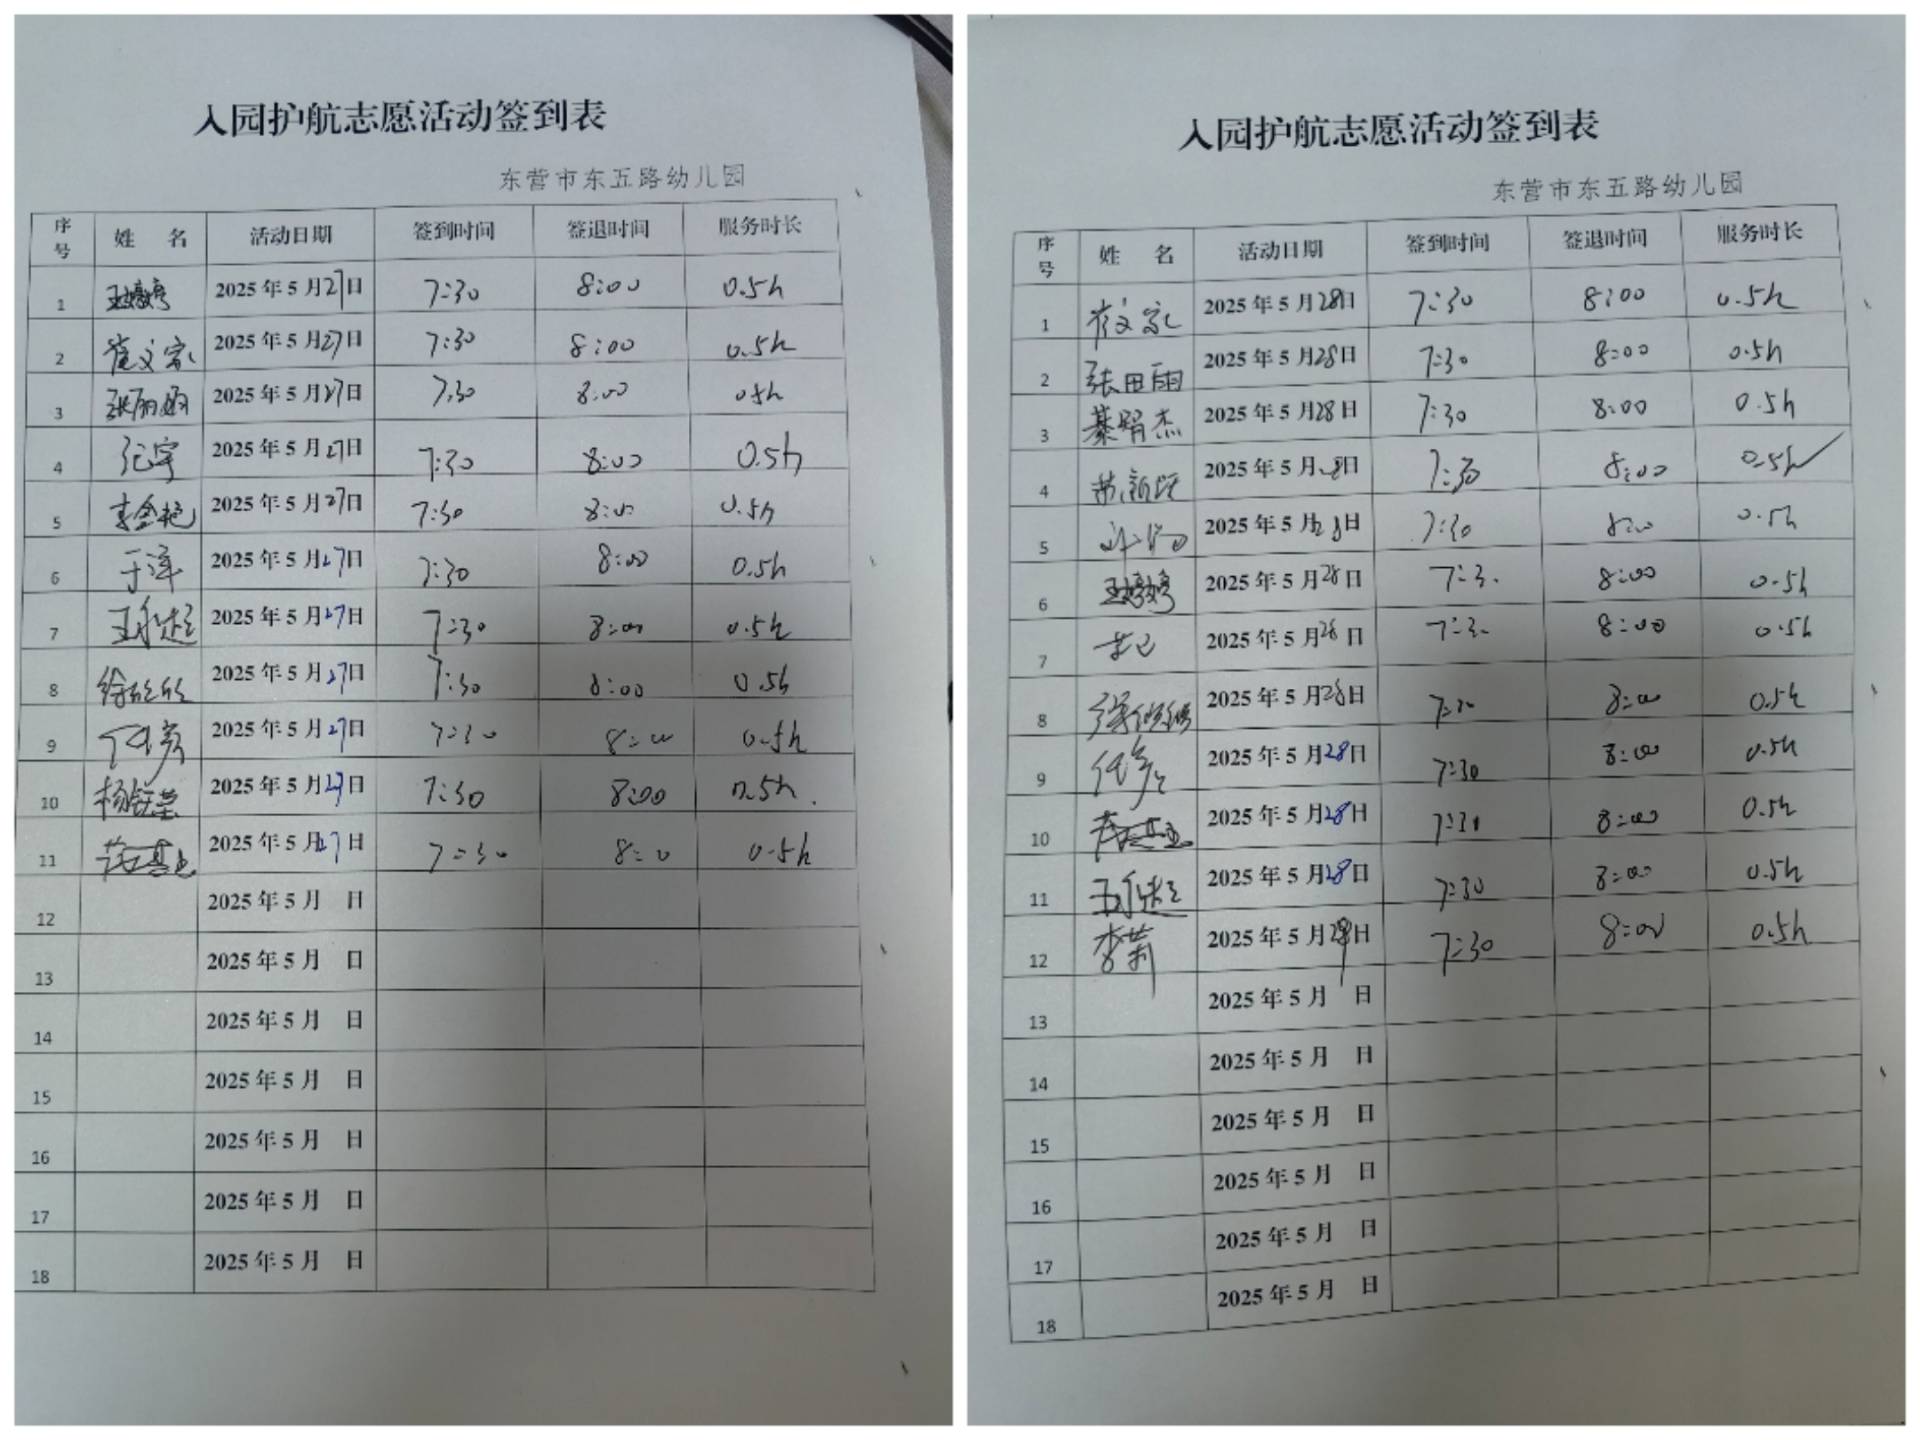 入园护航志愿活动签到表
东营市东五路幼儿园
序号 姓 名 活动日期 签到时间 签退时间 服务时长
1 2025年5月27日 7:30 8:00 0.5h
2 崔文家 2025年5月27日 7:30 8:00 0.5h
3 张丽娟 2025年5月27日 7:30 8:00 0.5h
4 2025年5月27日 7:30 8:00 0.5h
5 李金艳 2025年5月27日 7:30 8:00 0.5h
6 于洋 2025年5月27日 7:30 8:00 0.5h
7 2025年5月27日 7:30 8:00 0.5h
8 徐欣欣 2025年5月27日 7:30 8:00 0.5h
9 任彦 2025年5月27日 7:30 8:00 0.5h
10 2025年5月27日 7:30 8:00 0.5h
11 2025年5月27日 7:30 8:00 0.5h
12 2025年5月 日
13 2025年5月 日
14 2025年5月 日
15 2025年5月 日
16 2025年5月 日
17 2025年5月 日
18 2025年5月 日
入园护航志愿活动签到表
东营市东五路幼儿园
序号 姓 名 活动日期 签到时间 签退时间 服务时长
1 崔文家 2025年5月28日 7:30 8:00 0.5h
2 张田雨 2025年5月28日 7:30 8:00 0.5h
3 綦娟杰 2025年5月28日 7:30 8:00 0.5h
4 2025年5月28日 7:30 8:00 0.5h
5 2025年5月28日 7:30 8:00 0.5h
6 2025年5月28日 7:30 8:00 0.5h
7 2025年5月28日 7:30 8:00 0.5h
8 2025年5月28日 7:30 8:00 0.5h
9 任彦 2025年5月28日 7:30 8:00 0.5h
10 2025年5月28日 7:30 8:00 0.5h
11 2025年5月28日 7:30 8:00 0.5h
12 李莉 2025年5月28日 7:30 8:00 0.5h
13 2025年5月 日
14 2025年5月 日
15 2025年5月 日
16 2025年5月 日
17 2025年5月 日
18 2025年5月 日